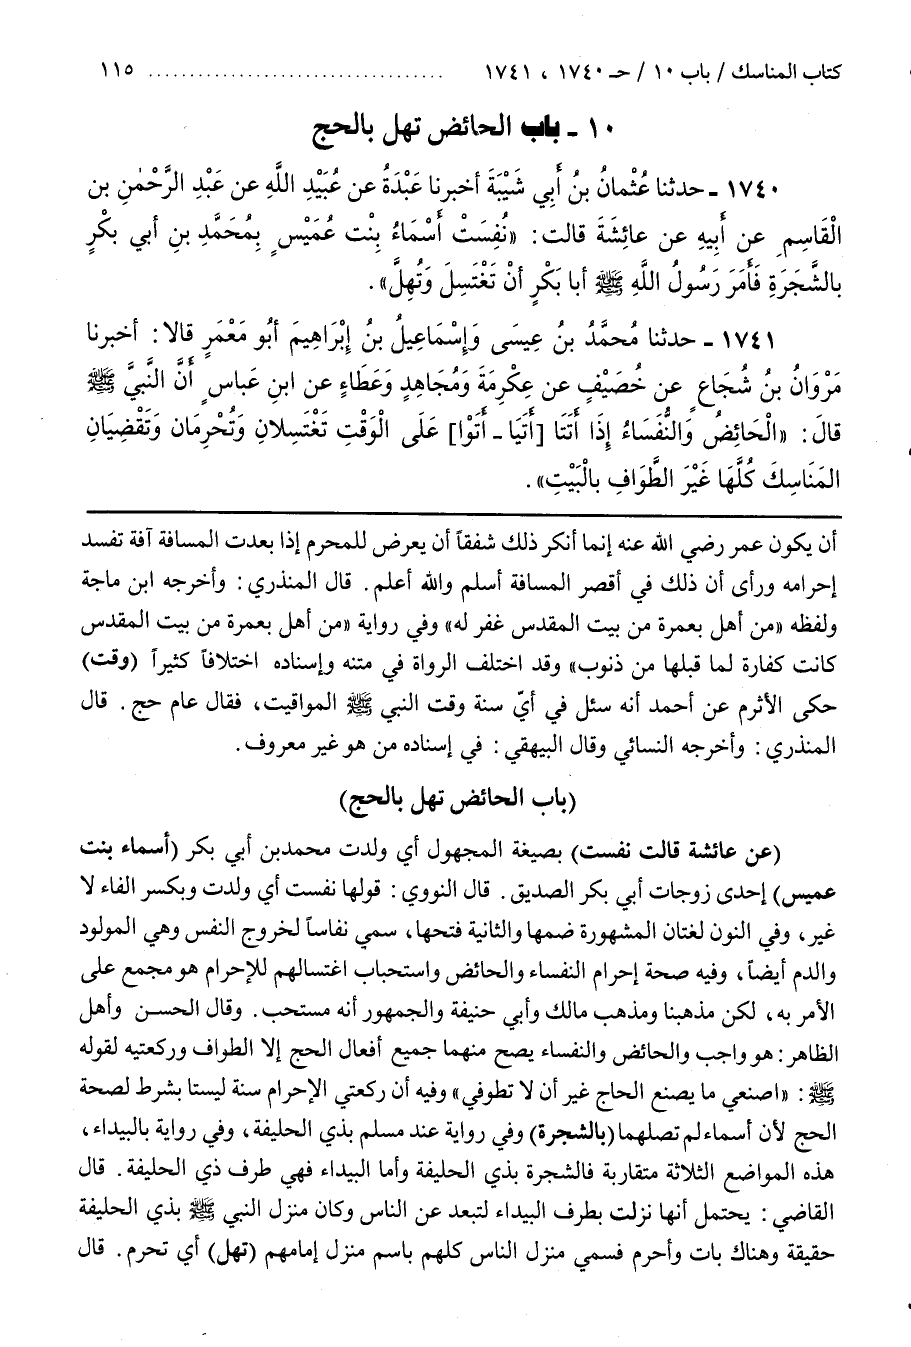 كتاب المناسك / باب ١٠ / حـ ١٧٤٠ ، ١٧٤١ .................................... ١١٥
١٠ ـ باب الحائض تهل بالحج
١٧٤٠ ـ حدثنا عُثْمانُ بنُ أَبي شَيْبَةَ أخبرنا عَبْدَةُ عن عُبَيْدِ اللَّهِ عن عَبْدِ الرَّحْمٰنِ بن
الْقَاسِمِ عن أَبِيهِ عن عائِشَةَ قالت: «نُفِسَتْ أَسْمَاءُ بِنْت عُمَيْسٍ بِمُحَمَّدِ بنِ أبي بَكْرٍ
بالشَّجَرَةِ فَأَمَرَ رَسُولُ اللَّهِ ﷺ أبا بَكْرٍ أنْ تَغْتَسِلَ وَتُهِلَّ».
١٧٤١ ـ حدثنا مُحمَّدُ بنُ عِيسَى وَإسْمَاعِيلُ بنُ إِبْرَاهِيمَ أَبُو مَعْمَرٍ قالا: أخبرنا
مَرْوَانُ بنُ شُجَاعٍ عن خُصَيْفٍ عن عِكْرِمَةَ وَمُجَاهِدٍ وَعَطَاءٍ عن ابنِ عَباسٍ أَنَّ النَّبيَّ ﷺ
قالَ: «الْحَائِضُ وَالنُّفَسَاءُ إِذَا أَتَتَا [أَتَيَا ـ أَتَوْا] عَلَى الْوَقْتِ تَغْتَسِلانِ وَتُحْرِمَان وَتَقْضِيَانِ
المَنَاسِكَ كُلَّهَا غَيْرَ الطَّوَافِ بالْبَيْتِ».
أن يكون عمر رضي الله عنه إنما أنكر ذلك شفقاً أن يعرض للمحرم إذا بعدت المسافة آفة تفسد
إحرامه ورأى أن ذلك في أقصر المسافة أسلم والله أعلم. قال المنذري: وأخرجه ابن ماجة
ولفظه «من أهل بعمرة من بيت المقدس غفر له» وفي رواية «من أهل بعمرة من بيت المقدس
كانت كفارة لما قبلها من ذنوب» وقد اختلف الرواة في متنه وإسناده اختلافاً كثيراً (وقت)
حكى الأثرم عن أحمد أنه سئل في أيّ سنة وقت النبي ﷺ المواقيت، فقال عام حج. قال
المنذري: وأخرجه النسائي وقال البيهقي: في إسناده من هو غير معروف.
(باب الحائض تهل بالحج)
(عن عائشة قالت نفست) بصيغة المجهول أي ولدت محمدبن أبي بكر (أسماء بنت
عميس) إحدى زوجات أبي بكر الصديق. قال النووي: قولها نفست أي ولدت وبكسر الفاء لا
غير، وفي النون لغتان المشهورة ضمها والثانية فتحها، سمي نفاساً لخروج النفس وهي المولود
والدم أيضاً، وفيه صحة إحرام النفساء والحائض واستحباب اغتسالهم للإحرام هو مجمع على
الأمر به، لكن مذهبنا ومذهب مالك وأبي حنيفة والجمهور أنه مستحب. وقال الحسن وأهل
الظاهر: هو واجب والحائض والنفساء يصح منهما جميع أفعال الحج إلا الطواف وركعتيه لقوله
ﷺ: «اصنعي ما يصنع الحاج غير أن لا تطوفي» وفيه أن ركعتي الإحرام سنة ليستا بشرط لصحة
الحج لأن أسماء لم تصلهما (بالشجرة) وفي رواية عند مسلم بذي الحليفة، وفي رواية بالبيداء،
هذه المواضع الثلاثة متقاربة فالشجرة بذي الحليفة وأما البيداء فهي طرف ذي الحليفة. قال
القاضي: يحتمل أنها نزلت بطرف البيداء لتبعد عن الناس وكان منزل النبي ﷺ بذي الحليفة
حقيقة وهناك بات وأحرم فسمي منزل الناس كلهم باسم منزل إمامهم (تهل) أي تحرم. قال